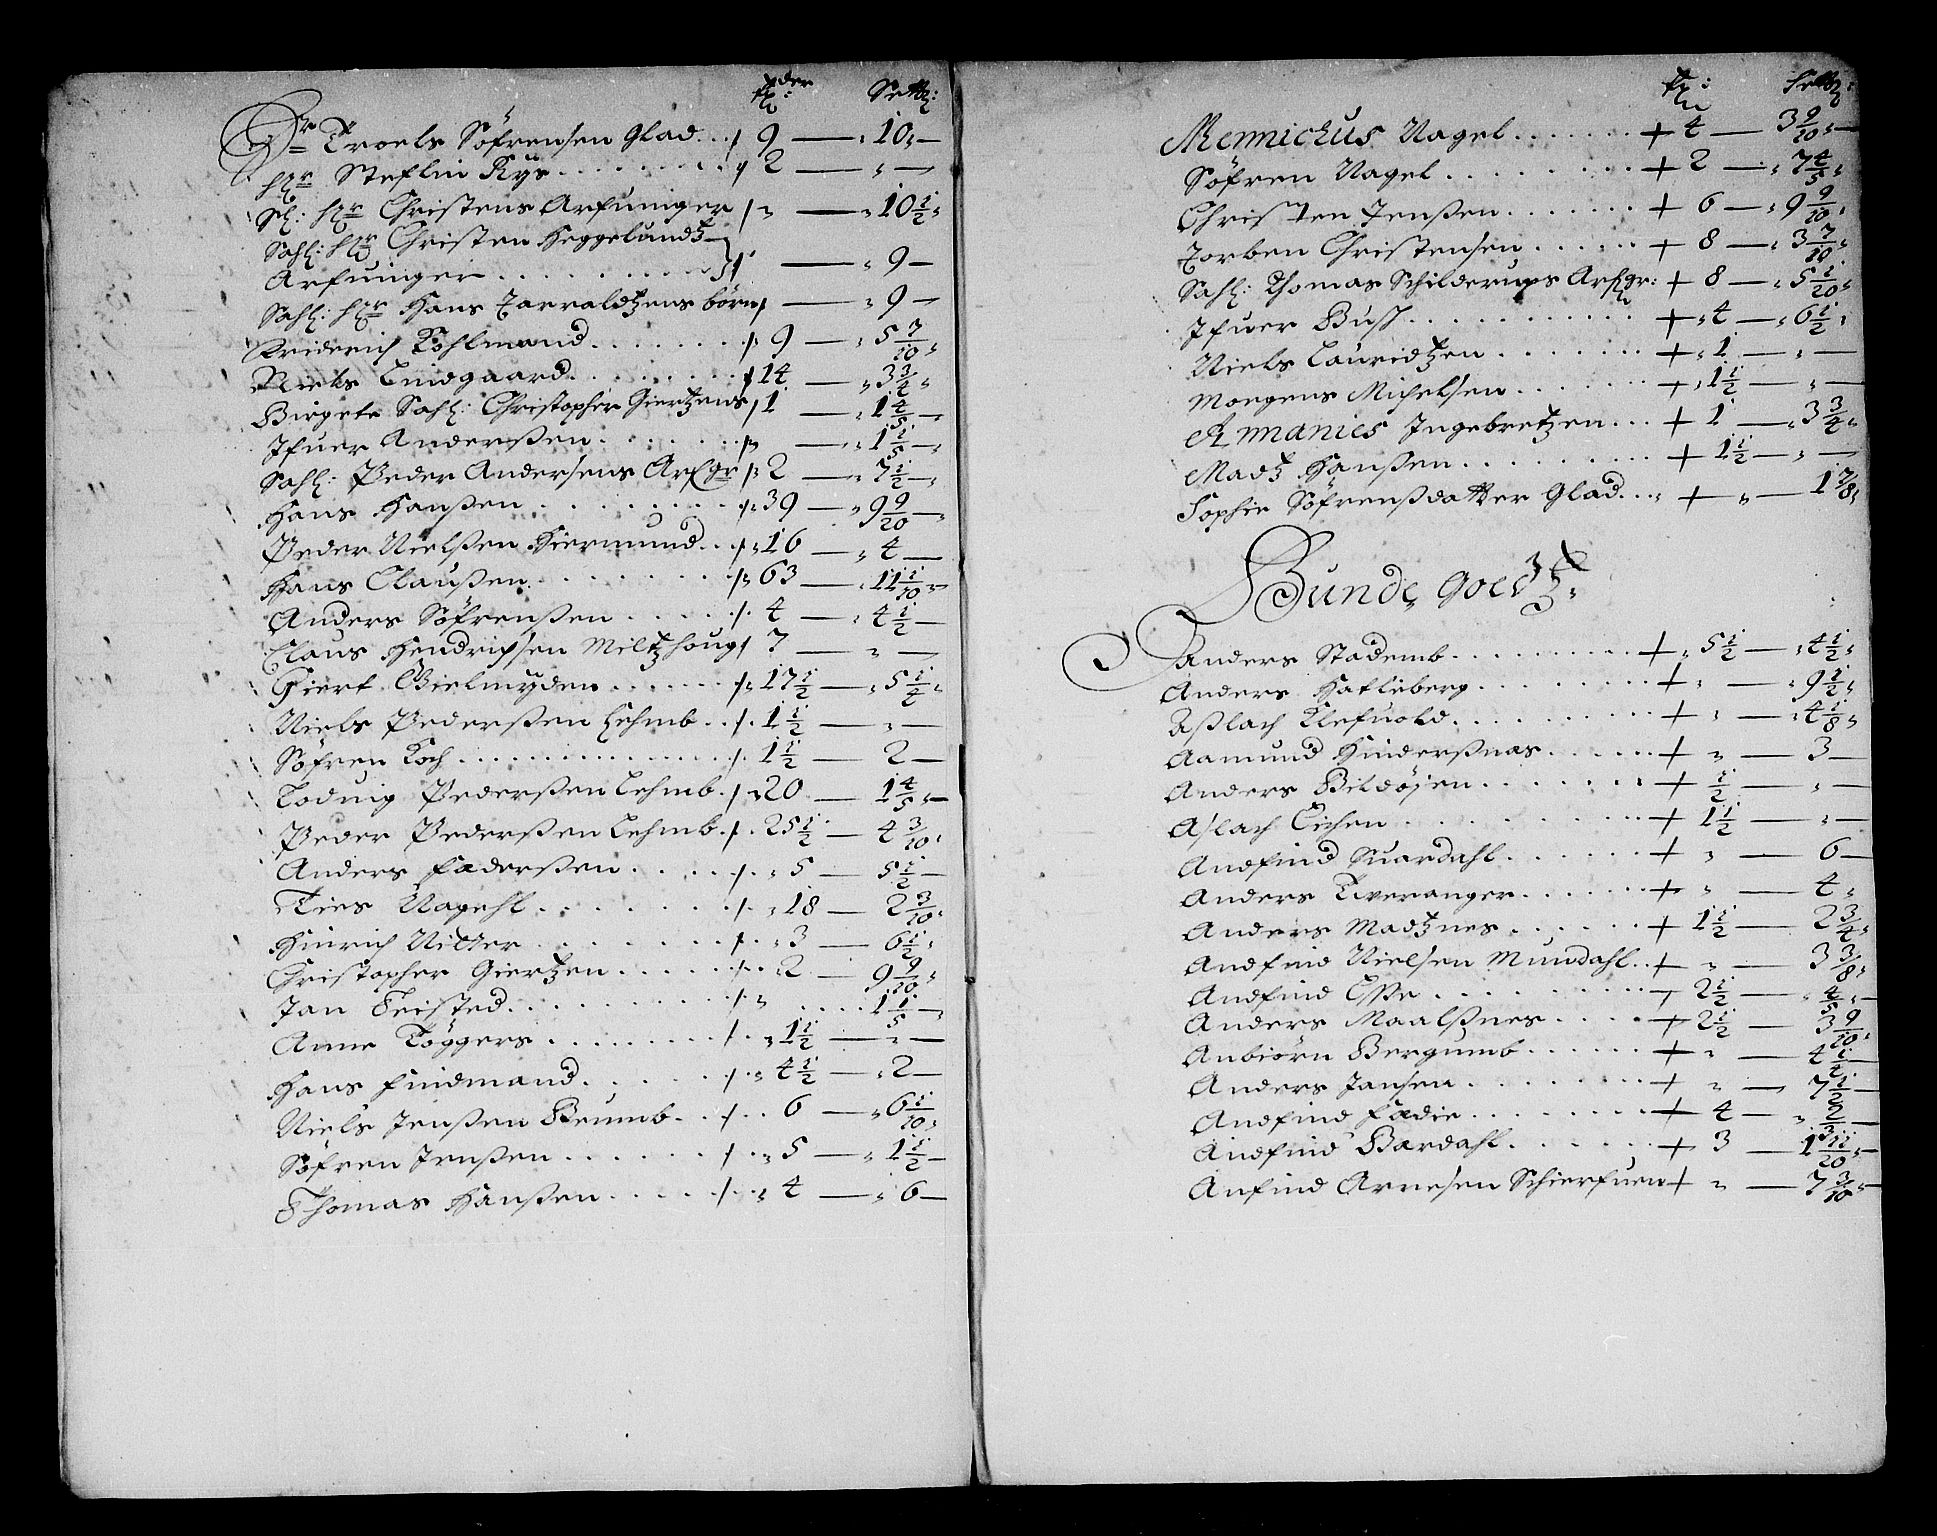 Setz:
Hr Troels Söfrensen Glad . . 9 — 10 —
Hr Steffen Rys . . . . 2 — „ —
Sl: Hr Christens Arfuinger „ — 10 1/2
Sahl: Hr Christen Heggelundtz
Arfuinger . . . . — 9 —
Sahl: Hr Hans Tarraldtzens börn — 9 —
Friderich Kohlmand . . . . 9 — 5 7/10
Niels Lindgaard . . . . 14 — 3 3/4
Birgete Sahl: Christopher Giertzens 1 — 1 4/5
Ifuer Anderßen . . . . „ — 1 1/5
Sahl: Peder Andersens Arfgr 2 — 7 1/2
Hans Hanßen . . . . 39 — 9 9/20
Peder Nielßen Hiermund . . 16 — 4 —
Hans Claußen . . . . 63 — 11 1/10
Anders Söfrenßen . . . . 4 — 4 1/2
Claus Hendrichsen Miltzhoug 7 — „ —
Giert Gielmyden . . . . 17 1/2 — 5 1/4
Niels Pederßen Lehmb . . 1 1/2 — „ —
Söfren Koch . . . . 1 1/2 — 2 —
Lodvig Pederßen Lehmb . 20 — 1 4/5
Peder Pederßen Lehmb . 25 1/2 — 4 3/10
Anders Faderßen . . . . 5 — 5 1/2
Ties Nagehl . . . . 18 — 2 3/10
Hinrich Vitter . . . . 3 — 6 1/2
Christopher Giertzen . . . . 2 — 9 9/10
Jan Teisted . . . . „ . . . . 1 1/5
Anne Töggers . . . . 1 1/2 — „ —
Hans Findmand . . . . 4 1/2 — 2 —
Niels Jenßen Brumb . . 6 — 6 1/10
Söfren Jenßen . . . . 5 — 1 1/2
Thomas Hanßen . . . . 4 — 6 —
Setz:
Mennichus Nagel . . . . + 4 — 3 9/10
Söfren Nagel . . . . + 2 — 7 4/5
Christen Jenßen . . . . + 6 — 9 9/10
Torben Christensen . . . . + 8 — 3 7/10
Sahl: Thomas Schilderups Arfgr: + 8 — 5 1/20
Ifuer Buss . . . . + 4 — 6 1/2
Niels Lauridtzen . . . . + 1 — „ —
Mogens Michelsen . . . . + 1 1/2 — „ —
Ingebretzen . . . + 1 — 3 3/4
Madtz Hanßen . . . . + 1 1/2 — „ —
Sophie Söfrenßdatter Glad . . + „ — 1 7/8
Bunde goedtz.
Anders Stademb . . . . + 5 1/2 — 4 1/2
Anders Hatleberg . . . . + „ — 9 1/2
Aßlach Klefuold . . . . + „ — 4 1/8
Aamund Hinderßnæs . . . . + „ — 3 —
Anders Bildöjen . . . . + 1/2 — „ —
Aslach Eichen . . . . + 1 1/2 — „ —
Andfind Suardahl . . . . + „ — 6 —
Anders Tveranger . . . . + „ — 4
Anders Madtznes . . . . + 1 1/2 — 2 3/4
Andfind Nielsen Mundahl . . + „ — 3 3/8
Andfind Espe . . . . + 2 1/2 — 4/5
Anders Maalßnes . . . . + 2 1/2 — 3 9/10
Anbiörn Bergumb . . . . + „ — 4 1/4
Anders Jansen . . . . + „ — 7 1/2
Andfind Fædie . . . . + 4 — 2/3
Andfind Bærdahl . . . . + 3 — 1 11/20
Anfind Arnesen Schierfuen + „ — 7 3/10